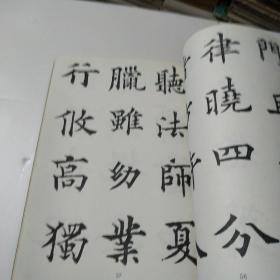 律曉四分
聽法師夏
臘雖幼業
行攸高獨
56
57